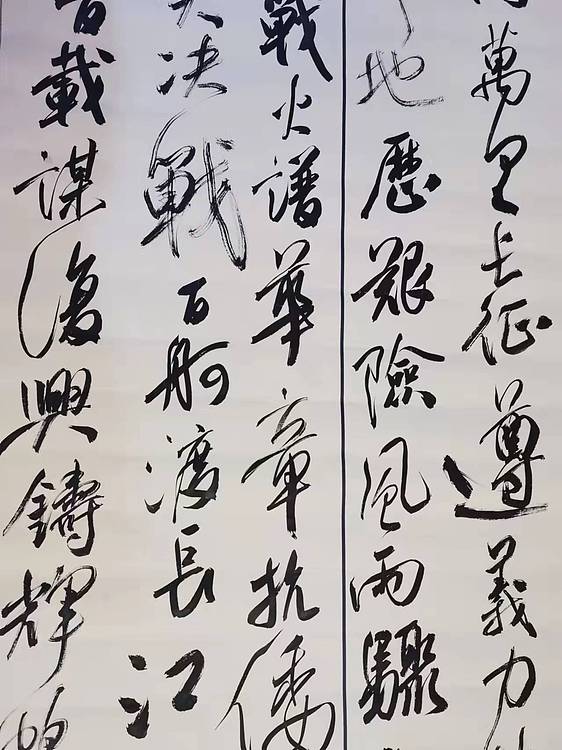 萬里长征遵義力
地歷艱險風雨驟
戰火譜華章抗倭
大决戰百舸渡長江
百載謀復興鑄輝煌